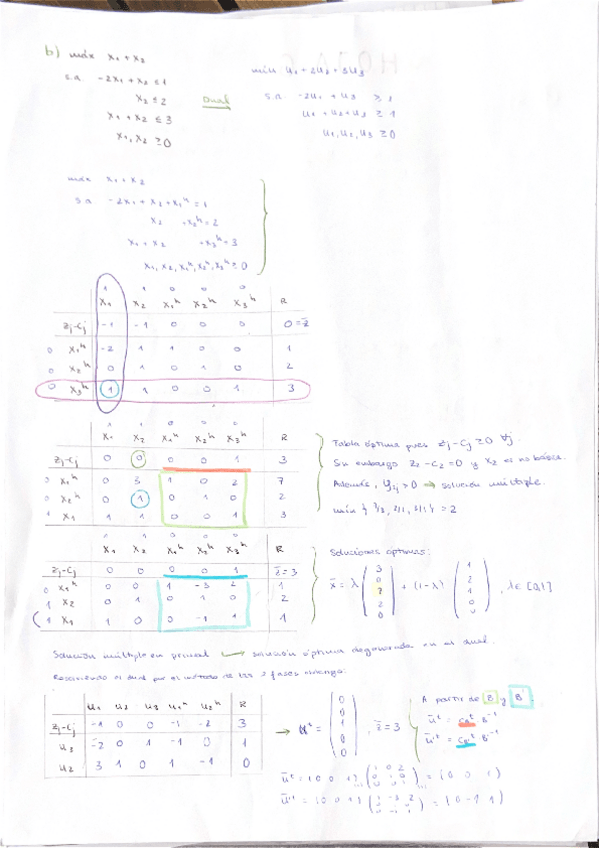 b) máx x₁ + x₂
s.a. -2x₁ + x₂ ≤ 1
x₂ ≤ 2
x₁ + x₂ ≤ 3
x₁, x₂ ≥ 0
Dual
mín u₁ + 2u₂ + 3u₃
s.a. -2u₁ + u₃ ≥ 1
u₁ + u₂ + u₃ ≥ 1
u₁, u₂, u₃ ≥ 0
máx x₁ + x₂
s.a. -2x₁ + x₂ + x₁ʰ = 1
x₂ + x₂ʰ = 2
x₁ + x₂ + x₃ʰ = 3
x₁, x₂, x₁ʰ, x₂ʰ, x₃ʰ ≥ 0
1 1 0 0 0
x₁ x₂ x₁ʰ x₂ʰ x₃ʰ R
zj-cj -1 -1 0 0 0 0 = z̄
0 x₁ʰ -2 1 1 0 0 1
0 x₂ʰ 0 1 0 1 0 2
0 x₃ʰ 1 1 0 0 1 3
x₁ x₂ x₁ʰ x₂ʰ x₃ʰ R
zj-cj 0 0 0 0 1 3
0 x₁ʰ 0 3 1 0 2 7
0 x₂ʰ 0 1 0 1 0 2
1 x₁ 1 1 0 0 1 3
Tabla óptima pues zj-cj ≥ 0 ∀j.
Sin embargo z₂-c₂ = 0 y x₂ es no básica.
Además, yij > 0 → solución múltiple.
mín { 7/3, 2/1, 3/1 } = 2
x₁ x₂ x₁ʰ x₂ʰ x₃ʰ R
zj-cj 0 0 0 0 1 z̄ = 3
0 x₁ʰ 0 0 1 -3 2 1
1 x₂ 0 1 0 1 0 2
1 x₁ 1 0 0 -1 1 1
Soluciones óptimas:
x̄ = λ (3 0 7 2 0) + (1-λ) (1 2 1 0 0), λ ∈ [0,1]
Solución múltiple en primal → solución óptima degenerada en el dual.
Resolviendo el dual por el método de las 2 fases obtengo:
u₁ u₂ u₃ u₁ʰ u₂ʰ R
zj-cj -1 0 0 -1 -2 3
u₃ -2 0 1 -1 0 1
u₂ 3 1 0 1 -1 0
→ ūᵗ = (0 0 0 0), z̄ = 3
A partir de B y B'
ūᵗ = cBᵗ B⁻¹
ū'ᵗ = cB'ᵗ B'⁻¹
ūᵗ = (0 0 1) (1 0 2 0 1 0 0 0 1) = (0 0 1)